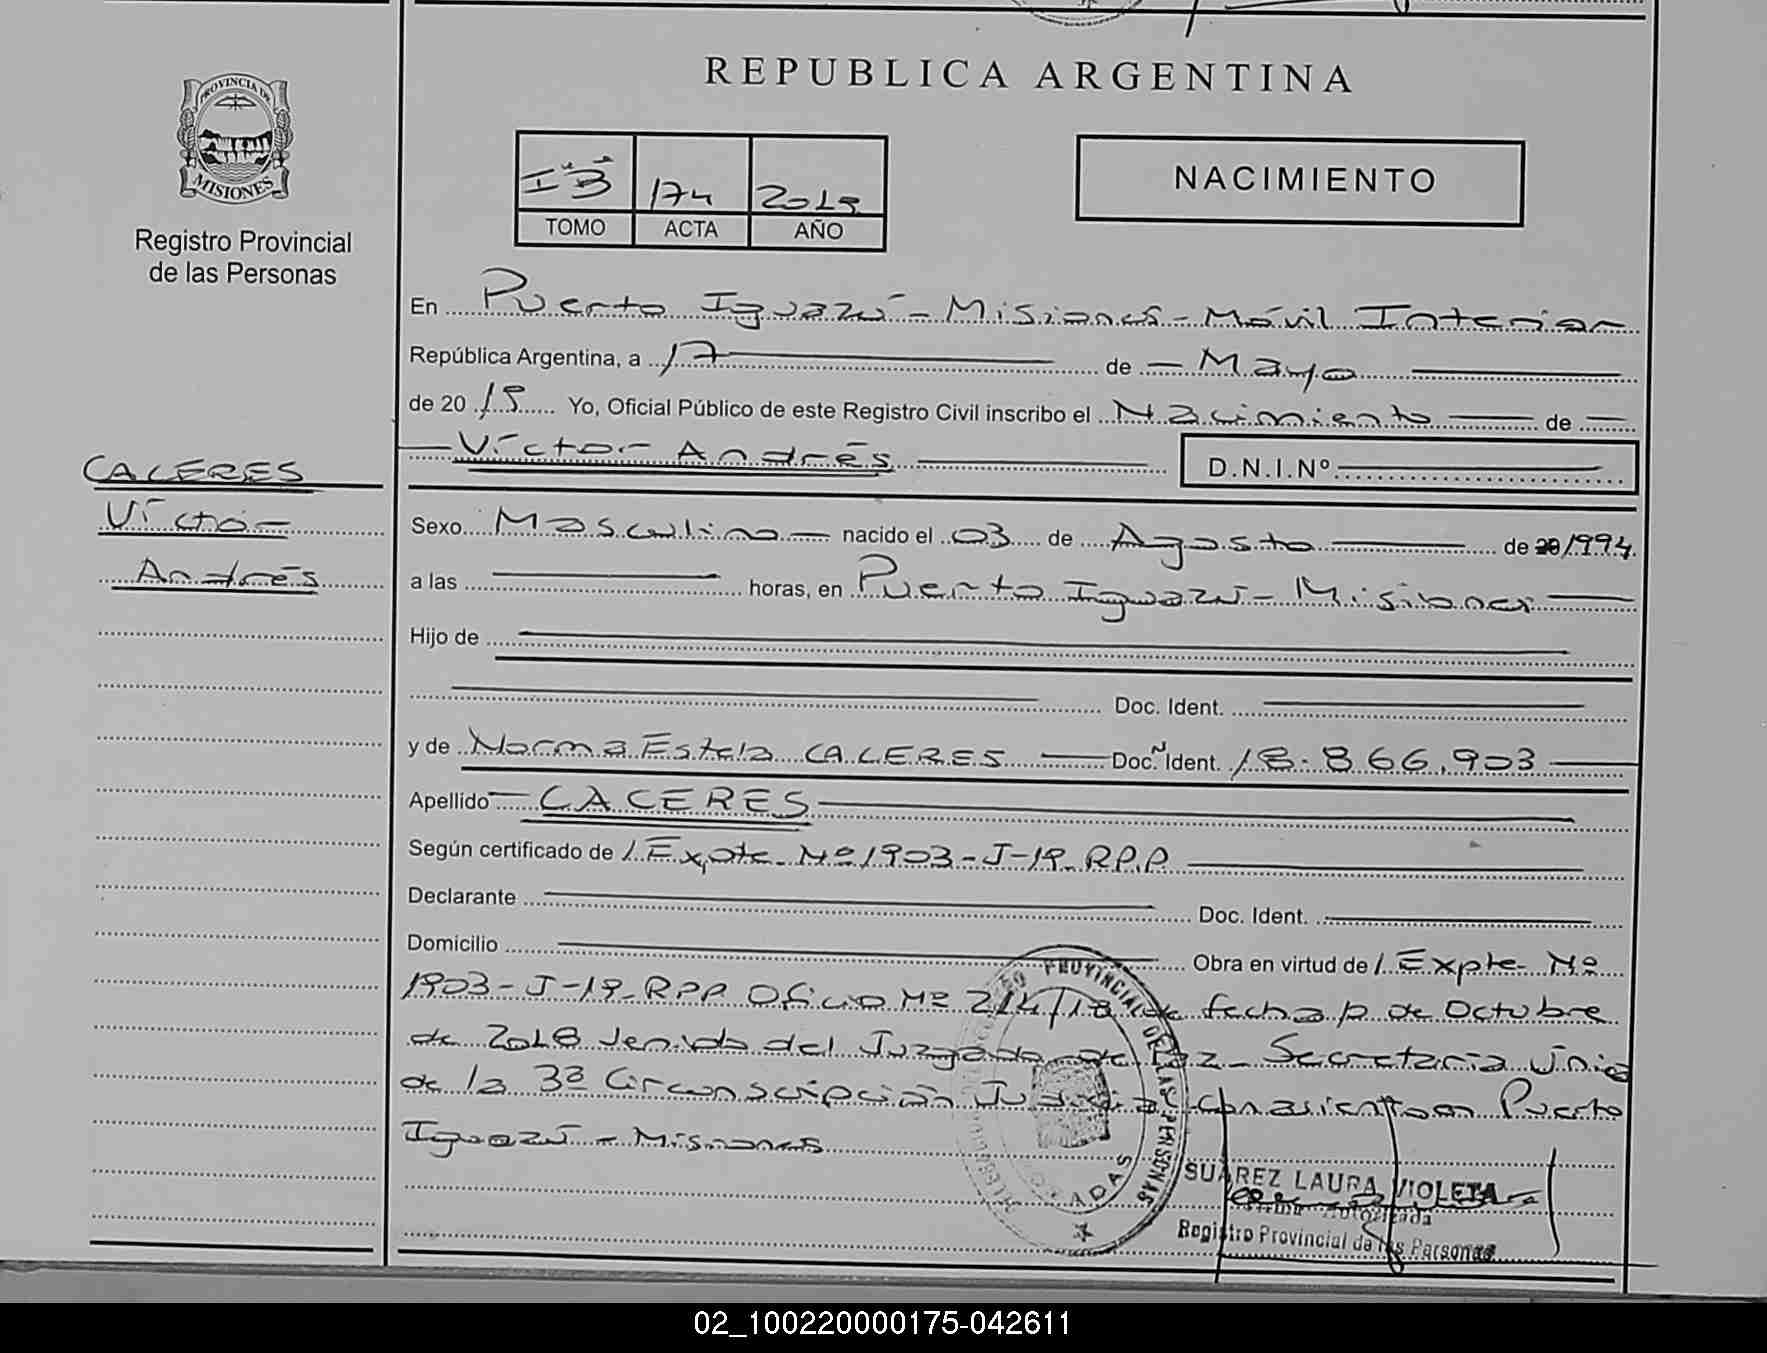 REPUBLICA ARGENTINA
PROVINCIA DE MISIONES
Registro Provincial
de las Personas
I"B" 174 2019
TOMO ACTA AÑO
NACIMIENTO
En Puerto Iguazú - Misiones - Móvil Interior
República Argentina, a 17 de Mayo
de 2019 Yo, Oficial Público de este Registro Civil inscribo el Nacimiento de
Víctor Andrés D.N.I.Nº
CACERES
Víctor
Andrés
Sexo Masculino nacido el 03 de Agosto de 1994.
a las horas, en Puerto Iguazú - Misiones
Hijo de
Doc. Ident.
y de Norma Estela CACERES Doc. Ident. Nº 18.866.903
Apellido CACERES
Según certificado de / Expte. Nº 1903-J-19-RPP.
Declarante Doc. Ident.
Domicilio Obra en virtud de / Expte- Nº
1903-J-19-RPP Oficio Nº 214/18 de fecha de Octubre
de 2018 venido del Juzgado de Paz - Secretaria única
de la 3ª Circunscripción Judicial con asiento en Puerto
Iguazú - Misiones
REGISTRO PROVINCIAL DE LAS PERSONAS
POSADAS
SUAREZ LAURA VIOLETA
Firma Autorizada
Registro Provincial de las Personas
02_100220000175-042611